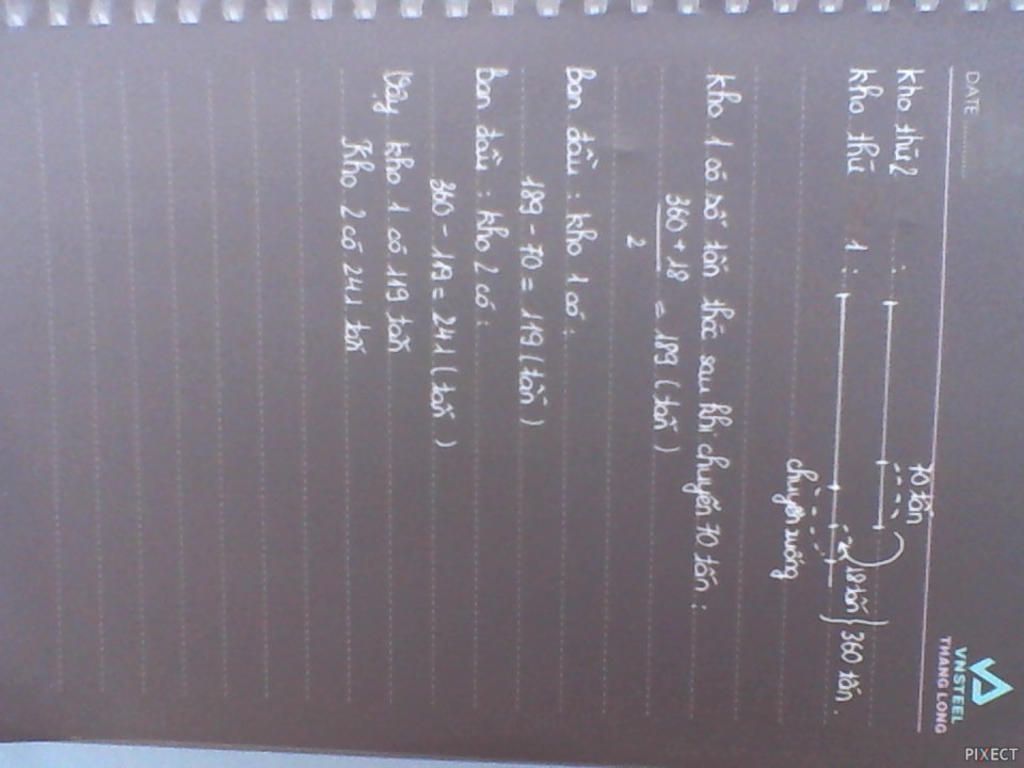 DATE
VNSTEEL
THANG LONG
70 tấn
kho thứ 2 :
kho thứ 1 : 18 tấn 360 tấn.
chuyển xuống
kho 1 có số tấn thóc sau khi chuyển 70 tấn :
360 + 18
2
= 189 (tấn)
Ban đầu : kho 1 có :
189 - 70 = 119 (tấn)
Ban đầu : kho 2 có :
360 - 119 = 241 (tấn)
Vậy kho 1 có 119 tấn
Kho 2 có 241 tấn
PIXECT